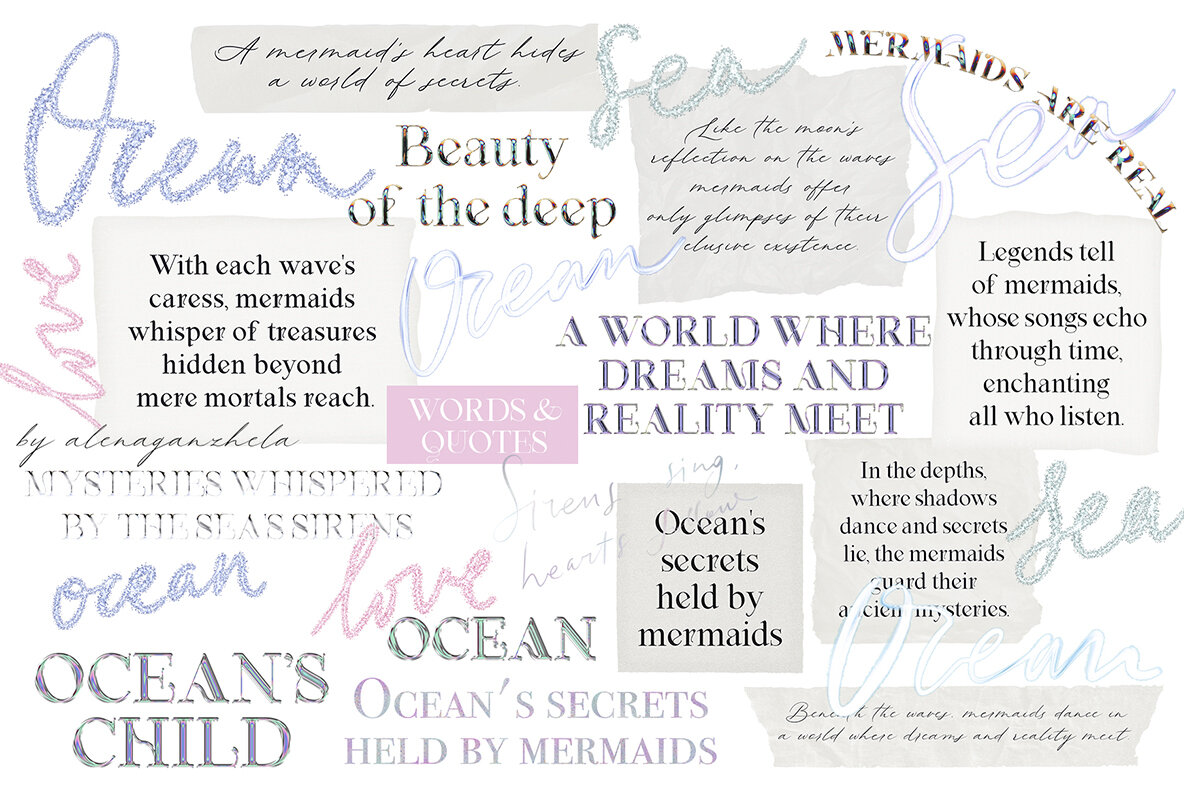 Ocean
A mermaid's heart hides
a world of secrets.
Sea
MERMAIDS ARE REAL
Sea
Beauty
of the deep
Like the moon's
reflection on the waves
mermaids offer
only glimpses of their
elusive existence.
love
With each wave's
caress, mermaids
whisper of treasures
hidden beyond
mere mortals reach.
Ocean
Legends tell
of mermaids,
whose songs echo
through time,
enchanting
all who listen.
A WORLD WHERE
DREAMS AND
REALITY MEET
WORDS &
QUOTES
by alenaganzhela
MYSTERIES WHISPERED
BY THE SEA'S SIRENS
Sirens sing,
hearts follow
Ocean's
secrets
held by
mermaids
In the depths,
where shadows
dance and secrets
lie, the mermaids
guard their
ancient mysteries.
sea
ocean
love
OCEAN
Ocean
OCEAN'S
CHILD
OCEAN'S SECRETS
HELD BY MERMAIDS
Beneath the waves, mermaids dance in
a world where dreams and reality meet.